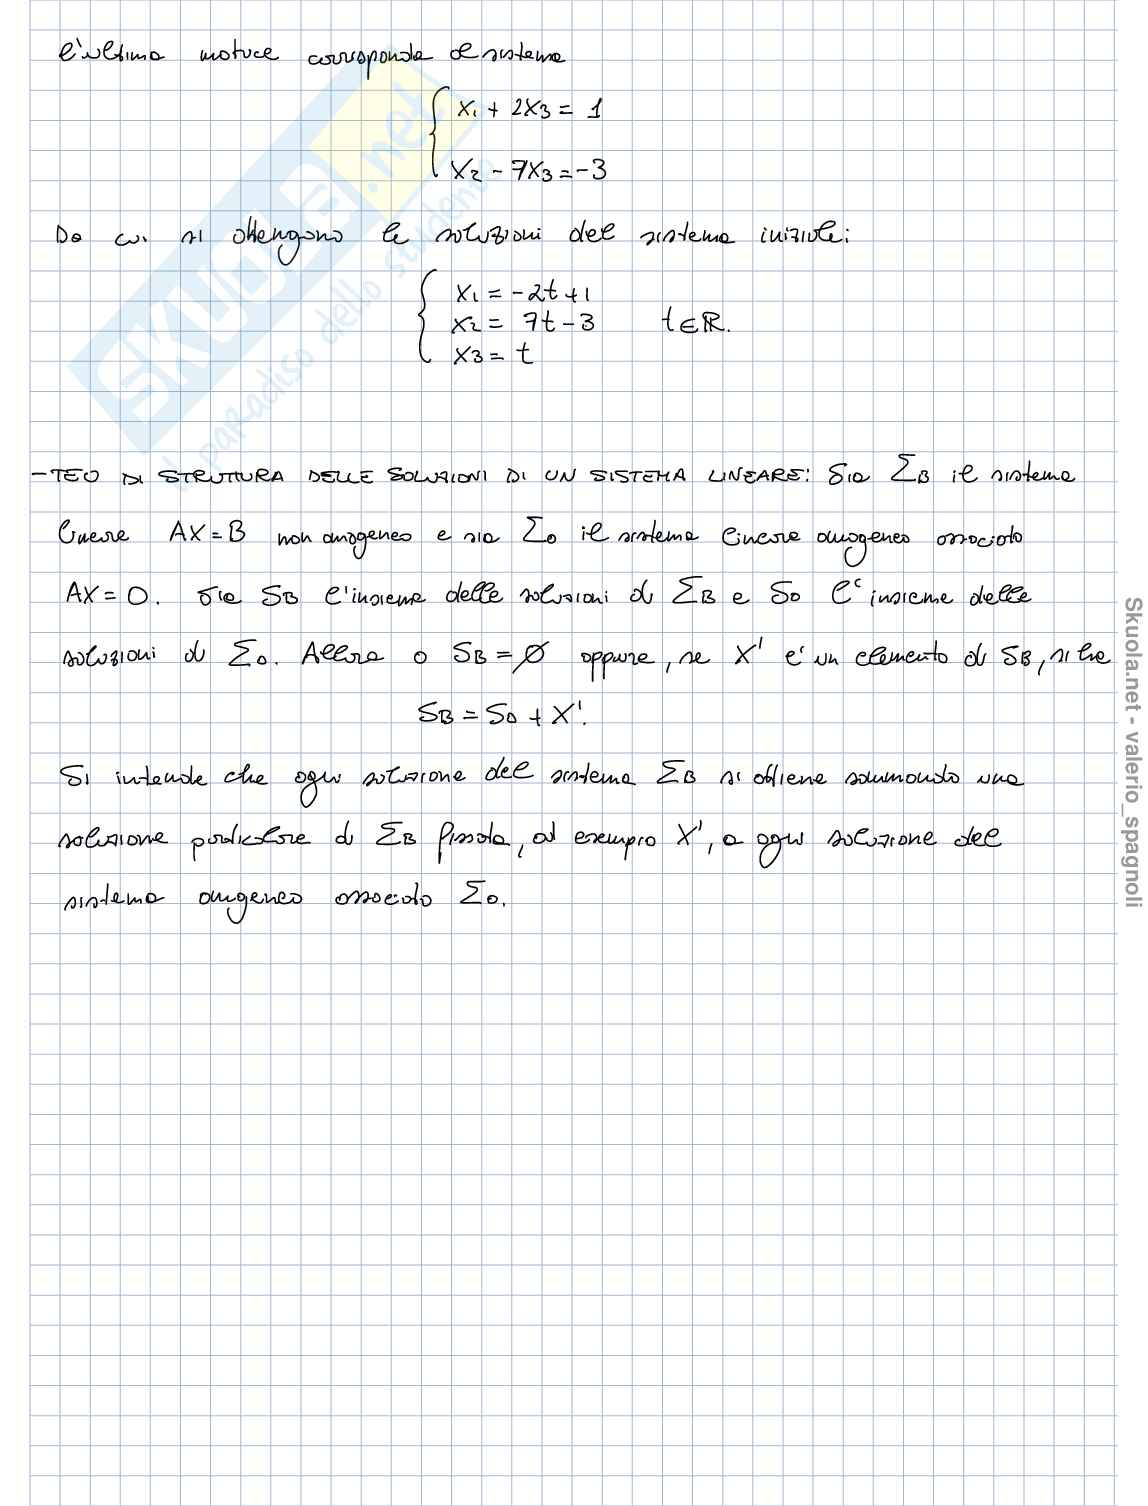 l'ultima matrice corrisponde al sistema
x₁ + 2x₃ = 1
x₂ - 7x₃ = -3
Da cui si ottengono le soluzioni del sistema iniziale:
x₁ = -2t + 1
x₂ = 7t - 3 t ∈ ℝ.
x₃ = t
- TEO DI STRUTTURA DELLE SOLUZIONI DI UN SISTEMA LINEARE: Sia Σ_B il sistema
lineare AX = B non omogeneo e sia Σ₀ il sistema lineare omogeneo associato
AX = 0. Sia S_B l'insieme delle soluzioni di Σ_B e S₀ l'insieme delle
soluzioni di Σ₀. Allora o S_B = ∅ oppure, se X' è un elemento di S_B, si ha
S_B = S₀ + X'.
Si intende che ogni soluzione del sistema Σ_B si ottiene sommando una
soluzione particolare di Σ_B fissata, ad esempio X', a ogni soluzione del
sistema omogeneo associato Σ₀.
SKUOLA.net
il paradiso dello studente
Skuola.net - valerio_spagnoli